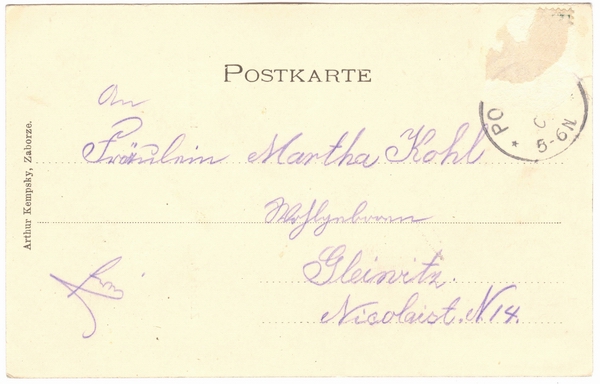 POSTKARTE
An
Fräulein Martha Kohl
Wohlgeboren
Gleiwitz.
Nicolaist. N 14.
frei
Arthur Kempsky, Zaborze.
PO
* 5-6N